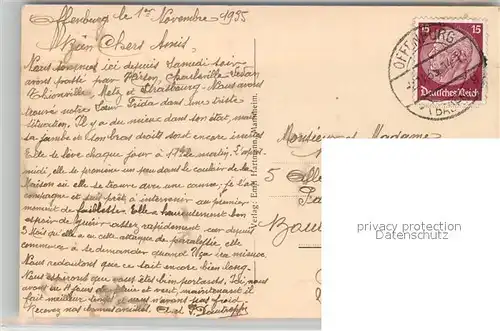 Offenburg le 1er Novembre 1935
Mein Chers Amis.
Nous sommes ici depuis Samedi soir
avons passé par Virton, Charleville, Sedan
Thionville, Metz et Strasbourg. Nous avons
trouvé notre Sœur Frida dans une triste
situation. Il y a du mieux dans son état, mais
sa jambe et son bras droits sont encore inertes
Elle se lève chaque jour à 11h le matin. L'après
midi, elle se promène un peu dans le couloir de la
Maison où elle se trouve avec une canne, je l'ac
compagne et suis prêt à intervenir au premier
moment de faiblesse. Elle a heureusement bon
espoir de guérir assez rapidement car depuis
3 Mois qu'elle a eu cette attaque de paralysie elle
commence à se demander quand
Nous redoutons que ce soit encore bien long.
Nous espérons que vous êtes bien portants. Ici nous
avons eu 4 jours de pluie et vent, maintenant il
fait meilleur temps et nous n'avons pas froid.
Recevez nos bonnes amitiés.
Verlag: Emil Hartmann, Mannheim.
15 15
Deutsches Reich
OFFENBURG
(BADEN)
Monsieur et Madame
5
privacy protection
www.ansichtskartenversand.com